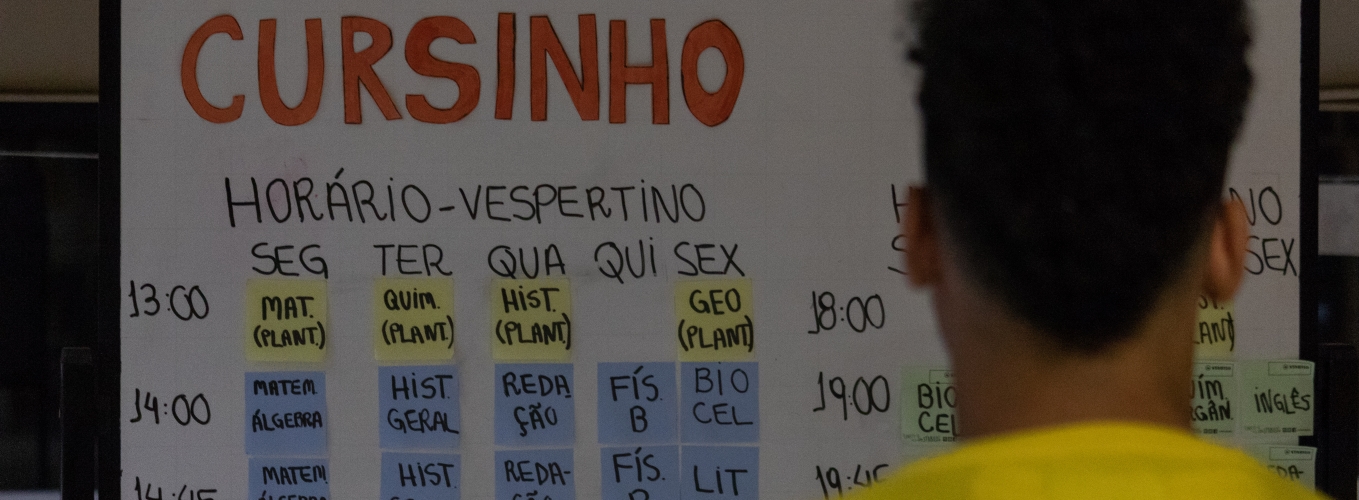 CURSINHO
HORÁRIO-VESPERTINO
SEG TER QUA QUI SEX
13:00 MAT. (PLANT.) QUIM. (PLANT) HIST. (PLANT.) GEO (PLANT)
14:00 MATEM. ÁLGEBRA HIST. GERAL REDA ÇÃO FÍS. B BIO CEL
14:45 MATEM HIST. REDA- FÍS. LIT
NO
SEX
18:00
19:00 BIO CEL INGLÊS
19:45